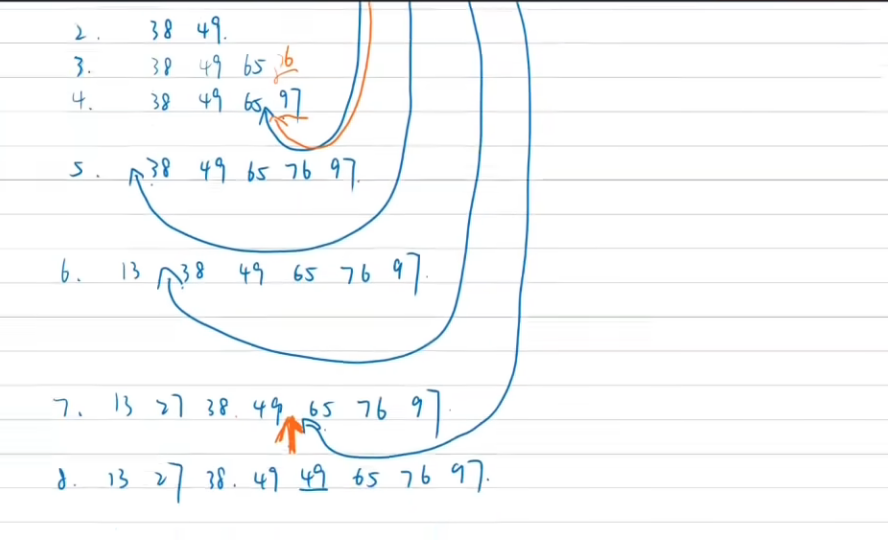 2. 38 49.
3. 38 49 65 76
4. 38 49 65 97
5. 38 49 65 76 97.
6. 13 38 49 65 76 97.
7. 13 27 38. 49 65 76 97.
8. 13 27 38. 49 49 65 76 97.